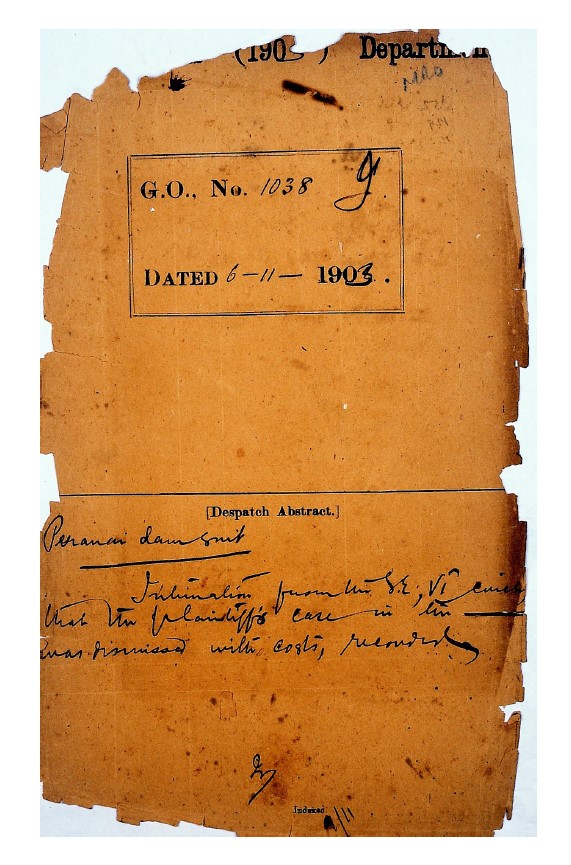 (1903) Department
MRO
G.O., No. 1038
DATED 6-11- 1903.
[Despatch Abstract.]
Peranai dam suit
Intimation from the S.E., VI
that the plaintiff's case in the
was dismissed with costs, recorded
Indexed